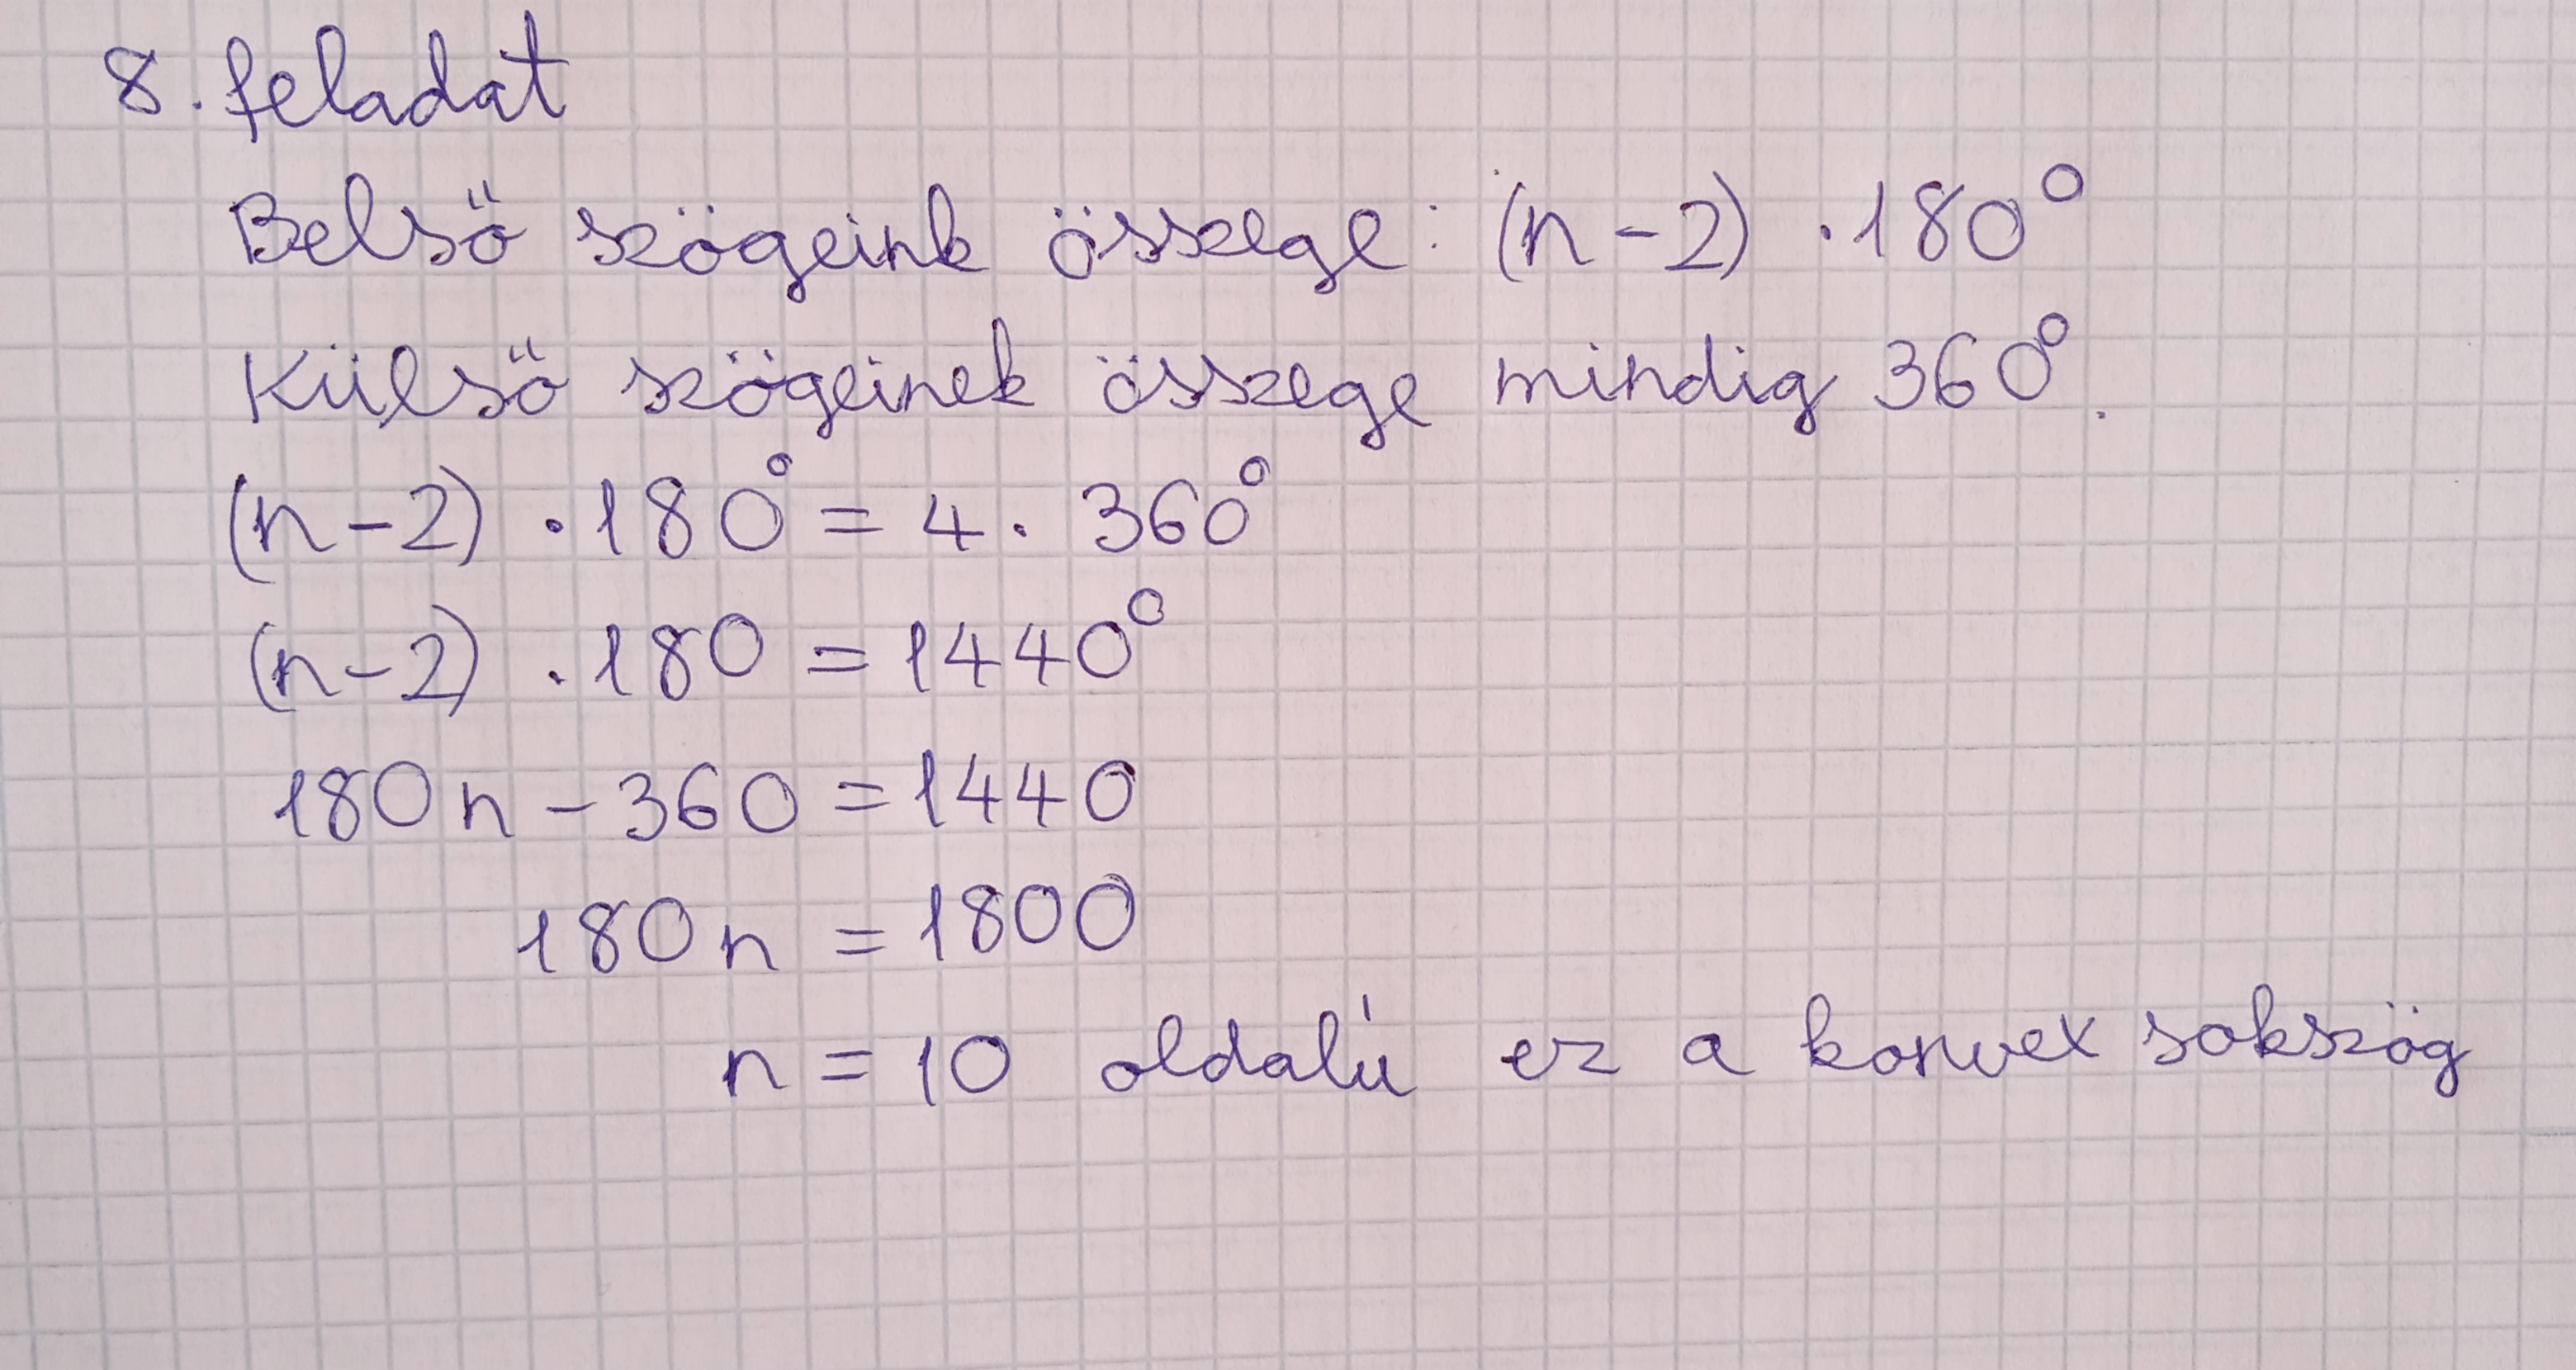 8. feladat
Belső szögeink összege: (n-2) · 180°
Külső szögeinek összege mindig 360°.
(n-2) · 180° = 4 · 360°
(n-2) · 180 = 1440°
180n - 360 = 1440
180n = 1800
n = 10 oldalú ez a konvex sokszög